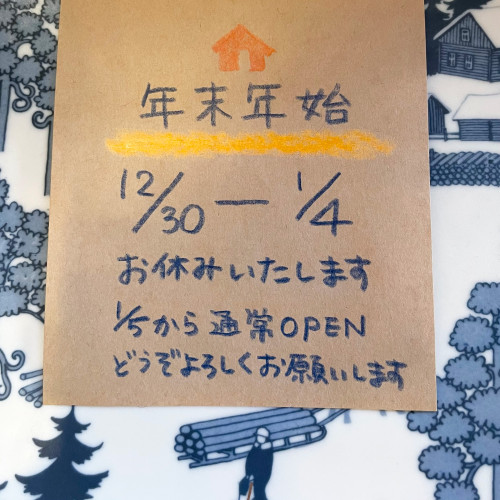 年末年始
12/30 ー 1/4
お休みいたします
1/5から通常OPEN
どうぞよろしくお願いします